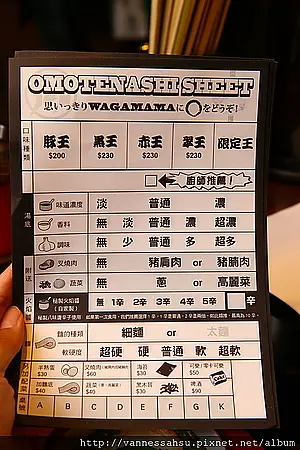 OMOTENASHI SHEET
思いっきりWAGAMAMAに○をどうぞ!
口味種類 豚王 黒王 赤王 翠王 限定王
$200 $230 $230 $230
廚師推薦!
湯底
味道濃度 淡 普通 濃
香料 無 淡 普通 濃 超濃
調味 無 少 普通 多 超多
附送
叉燒肉 無 豬肩肉 or 豬腩肉
蔬菜 無 蔥 or 高麗菜
秘製火焰醬(自家製) 無 1辛 2辛 3辛 4辛 5辛 辛
麵的種類 細麵 or 太麵
軟硬度 超硬 硬 普通 軟 超軟
另加配菜
半熟蛋 $30 叉燒肉 $60 海苔 $30 可樂/零卡可樂
加麵底 $40 蔬菜 $40 黑木耳 $30 啤酒 $90
桌號 A B C D E F G K
http://vannessahsu.pixnet.net/album